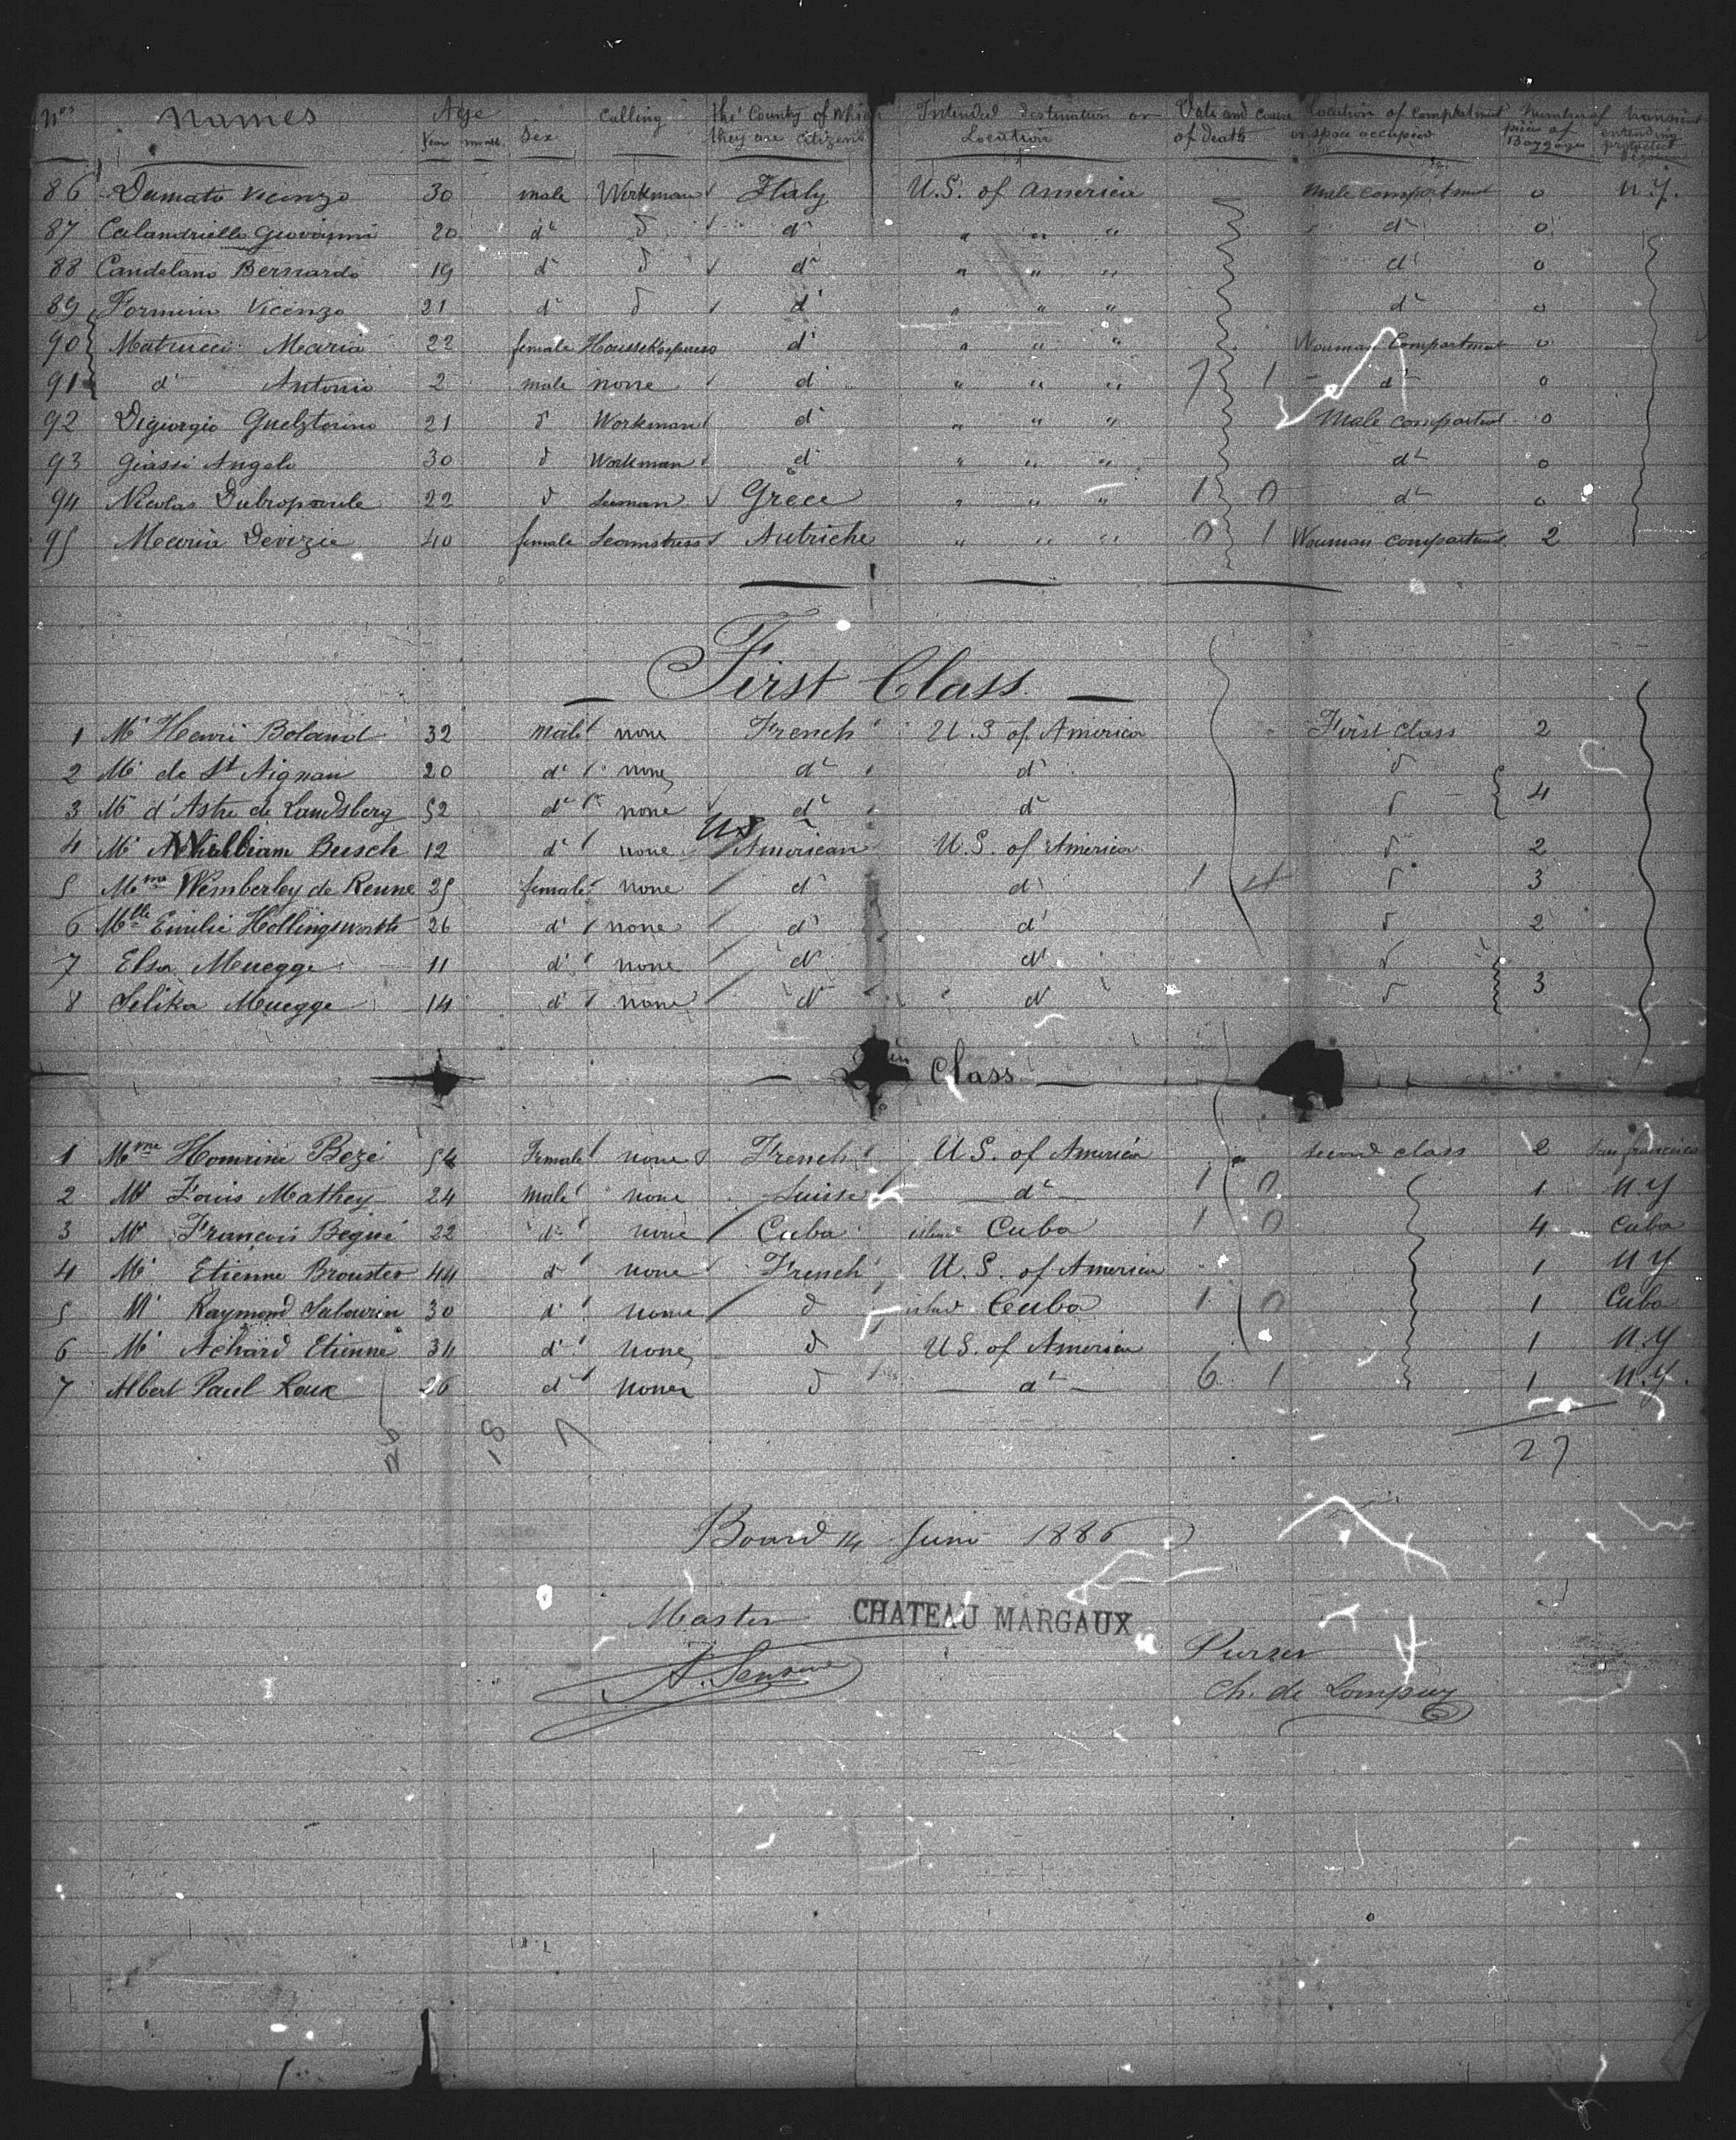 Nos Names Age Sex Calling the County of Which Intended destination or Date and Cause Location of Compartment Number of transient
Years they are Citizens Location of death or space occupied pieces of
Baggages
86 Damato Vicenzo 30 male Workman Italy U.S. of America Male compartment 0 N.Y.
87 Calandriello Giovanni 20 do d do " " " do 0
88 Candelano Bernardo 19 do d do " " " do 0
89 Formini Vicenzo 21 do d do " " " do 0
90 Matrucci Maria 22 female do " " " Wouman Compartment 0
91 do Antonio 2 male none do " " " 1 do 0
92 Digiorgio 21 d Workman do " " " Male compartment 0
93 Giassi Angelo 30 d Workman do " " " do 0
94 Nicolas 22 d Seman Grece " " " 1 0 do 0
95 Maria Devizie 40 female Seamstress Autriche " " " 0 1 Wouman compartment 2
First Class
1 Mr Henri Boland 32 male none French U.S of America First class 2
2 Mr de St Aignan 20 do none do do d
3 Mr d'Astre de Landsberg 52 do none do do d 4
US
4 Mr William Busch 12 do none American U.S. of America d 2
5 Mme Wemberley de Renne 25 female none do do 1 d 3
6 Mlle Emilie Hollingsworth 26 do none do do d 2
7 Elsa Muegge 11 do none do do d
8 Selika Muegge 14 do none do do d 3
Class
1 Mme Bezé 54 Female none French U.S. of America second class 2 San francisco
2 Mr Louis Mathey 24 male none Suisse do 1 0 1 N.Y
3 Mr Francois Begué 22 do none Cuba island Cuba 1 0 4 Cuba
4 Mr Etienne Brouster 44 d none French U.S. of America 1 N Y
5 Mr Raymond Sabourin 30 d none d island Cuba 1 0 1 Cuba
6 Mr Achard Etienne 34 do none d U.S. of America 1 N.Y
7 Albert Paul Roux 26 do none d do 6 1 1 N.Y.
26 18 7
27
Board 14 Juni 1886
Master CHATEAU MARGAUX
Purser
A. Sensine
Ch. de Lompuy